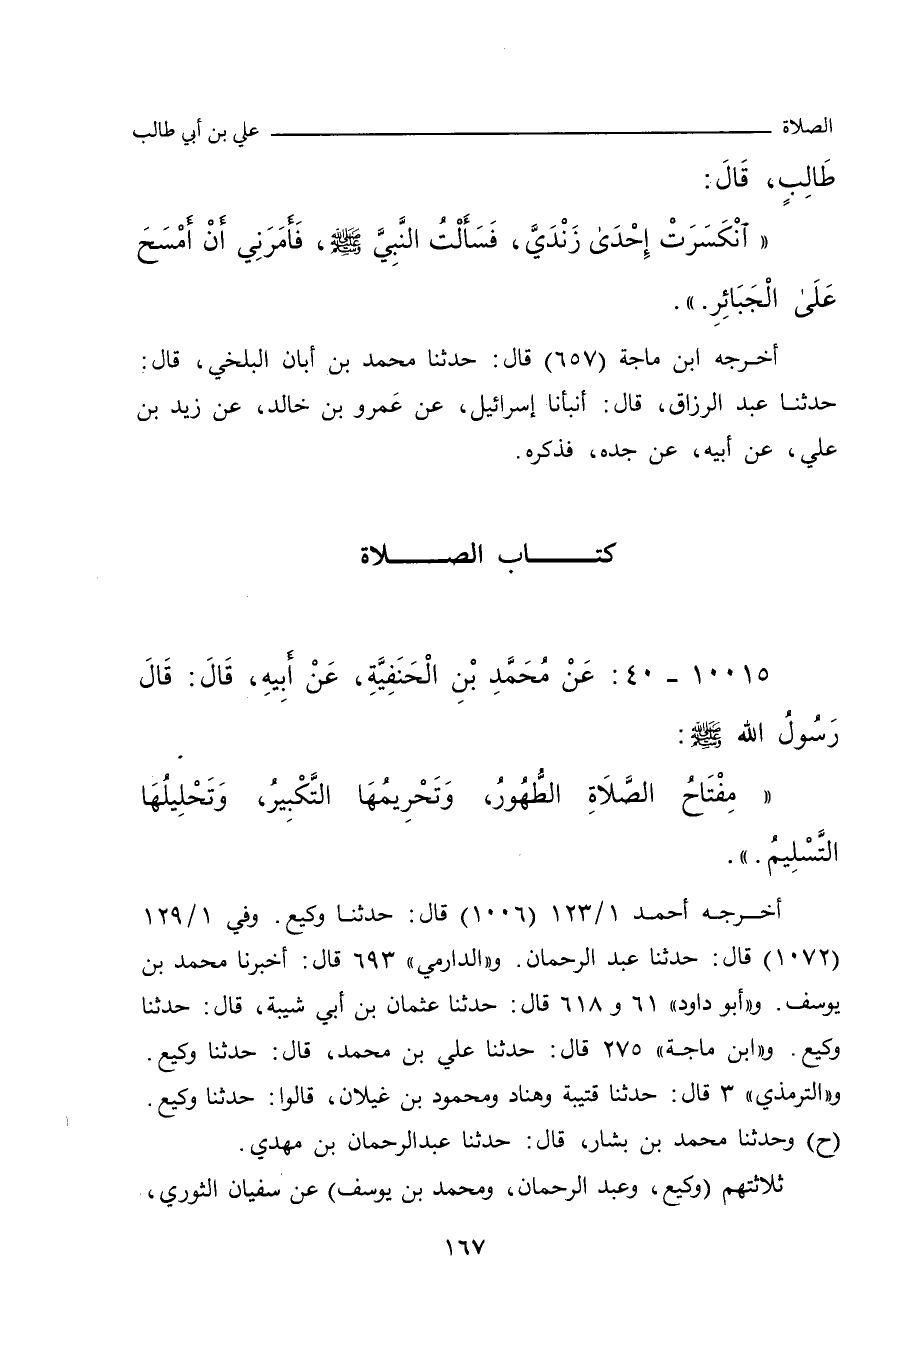 الصلاة ــــــــــــ علي بن أبي طالب
طَالِبٍ، قَالَ:
« ٱنْكَسَرَتْ إِحْدَىٰ زَنْدَيَّ، فَسَأَلْتُ النَّبِيَّ ﷺ، فَأَمَرَنِي أَنْ أَمْسَحَ
عَلَىٰ الْجَبَائِرِ. ».
أخـرجه ابن ماجة (٦٥٧) قال: حدثنا محمد بن أبان البلخي، قال:
حدثنـا عبد الرزاق، قال: أنبأنا إسرائيل، عن عَمرو بن خالد، عن زيد بن
علي، عن أبيه، عن جده، فذكره.
كتـــــــاب الصـــــــلاة
١٠٠١٥ - ٤٠: عَنْ مُحَمَّدِ بْنِ الْحَنَفِيَّةِ، عَنْ أَبِيهِ، قَالَ: قَالَ
رَسُولُ الله ﷺ:
« مِفْتَاحُ الصَّلَاةِ الطُّهُورُ، وَتَحْرِيمُهَا التَّكْبِيرُ، وَتَحْلِيلُهَا
التَّسْلِيمُ. ».
أخــرجـه أحمـد ١٢٣/١ (١٠٠٦) قال: حدثنـا وكيع. وفي ١٢٩/١
(١٠٧٢) قال: حدثنا عبد الرحمان. و«الدارمي» ٦٩٣ قال: أخبرنا محمد بن
يوسف. و«أبو داود» ٦١ و ٦١٨ قال: حدثنا عثمان بن أبي شيبة، قال: حدثنا
وكيع. و«ابن ماجـة» ٢٧٥ قال: حدثنا علي بن محمد، قال: حدثنا وكيع.
و«الترمذي» ٣ قال: حدثنا قتيبة وهناد ومحمود بن غيلان، قالوا: حدثنا وكيع.
(ح) وحدثنا محمد بن بشار، قال: حدثنا عبدالرحمان بن مهدي.
ثلاثتهم (وكيع، وعبد الرحمان، ومحمد بن يوسف) عن سفيان الثوري،
١٦٧